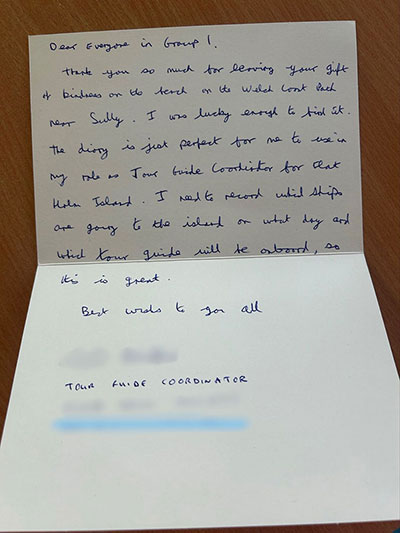 Dear Everyone in Group 1,
Thank you so much for leaving your gift
of kindness on the bench on the Welsh Coast Path
near Sully. I was lucky enough to find it.
The diary is just perfect for me to use in
my role as Tour Guide Coordinator for Flat
Holm Island. I need to record which ships
are going to the island on what day and
which tour guide will be onboard, so
its is great.
Best wishes to you all
TOUR GUIDE COORDINATOR